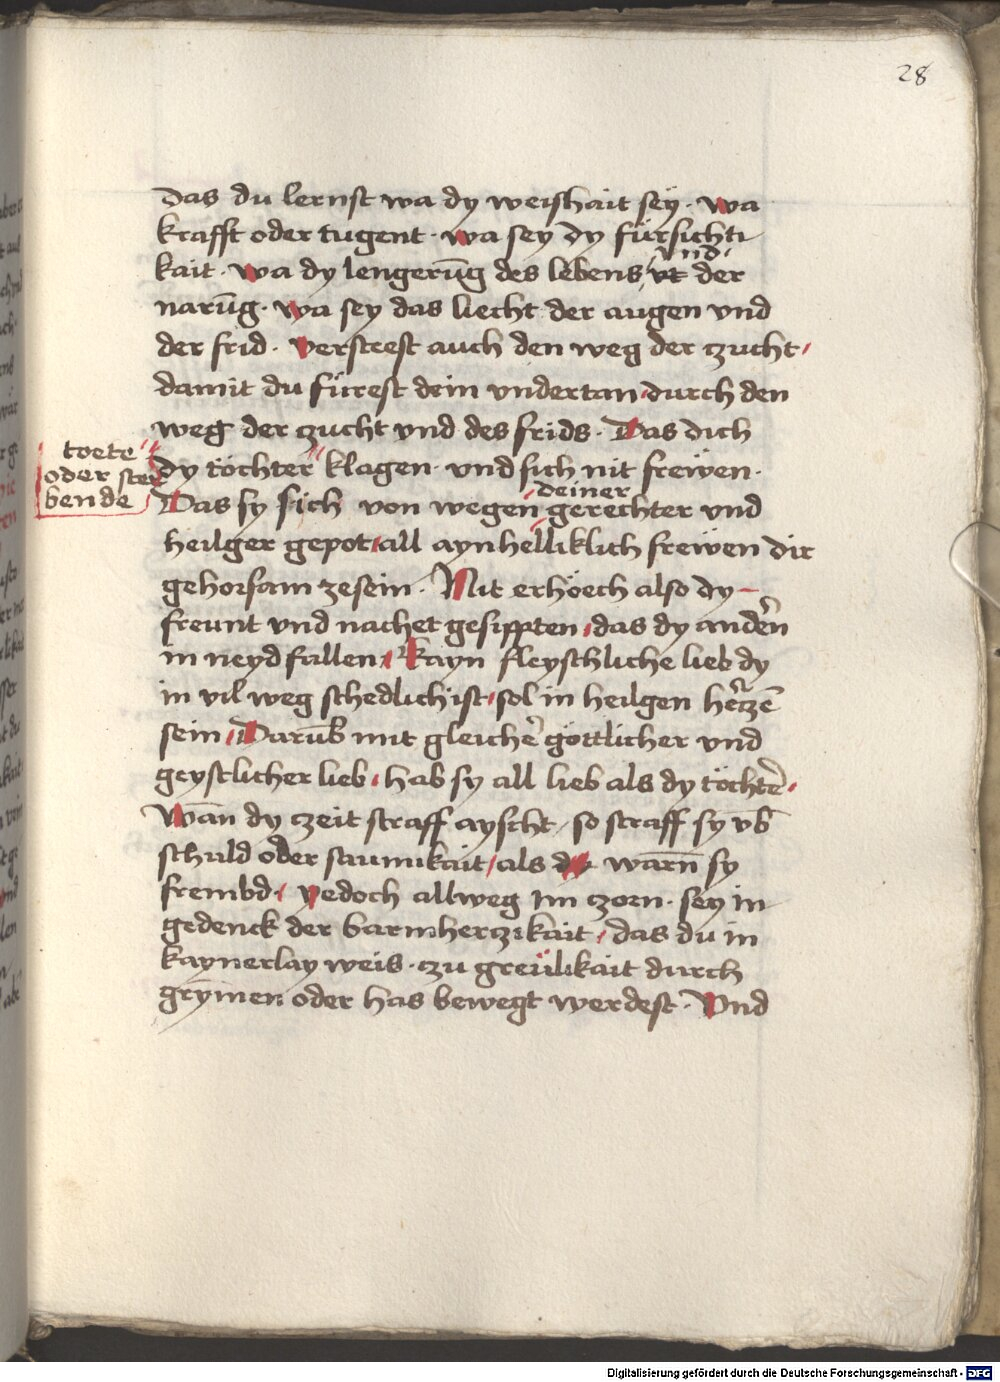 28
das du lernst wa dy weishait sey · wa
krafft oder tugent · wa sey dy fürsichti
kait · wa dy lengerūg des lebens vnd der
narūg · wa sey das liecht der augen vnd
der frid · versteest auch den weg der zucht
damit du fürest dein vndertan durch den
weg der zucht vnd des frids · Das dich
toete
oder ster
bende
dy töchter klagen · vnd sich nit frewen ·
deiner
Das sy sich von wegen gerechter vnd
heilger gepot all aynhelliklich frewen dir
gehorsam zesein · Nit erhöech also dy
freunt vnd nachet gesippten das dy andern̄
in neyd fallen kayn fleyschliche lieb dy
in vil weg schedlich ist sol in heilgen hērczē
sein Darūb mit gleichē göttlicher vnd
geystlicher lieb hab sy all lieb als dy töchtē
Wān dy czeit straff ayscht / so straff sy vb̄
schuld oder saumikait als warn̄ sy
frembd · yedoch allweg im czorn · sey in
gedenck der barmherczikait das du in
kaynerlay weis · czu greülikait durch
grymen oder has bewegt werdest · Vnd
Digitalisierung gefördert durch die Deutsche Forschungsgemeinschaft - DFG